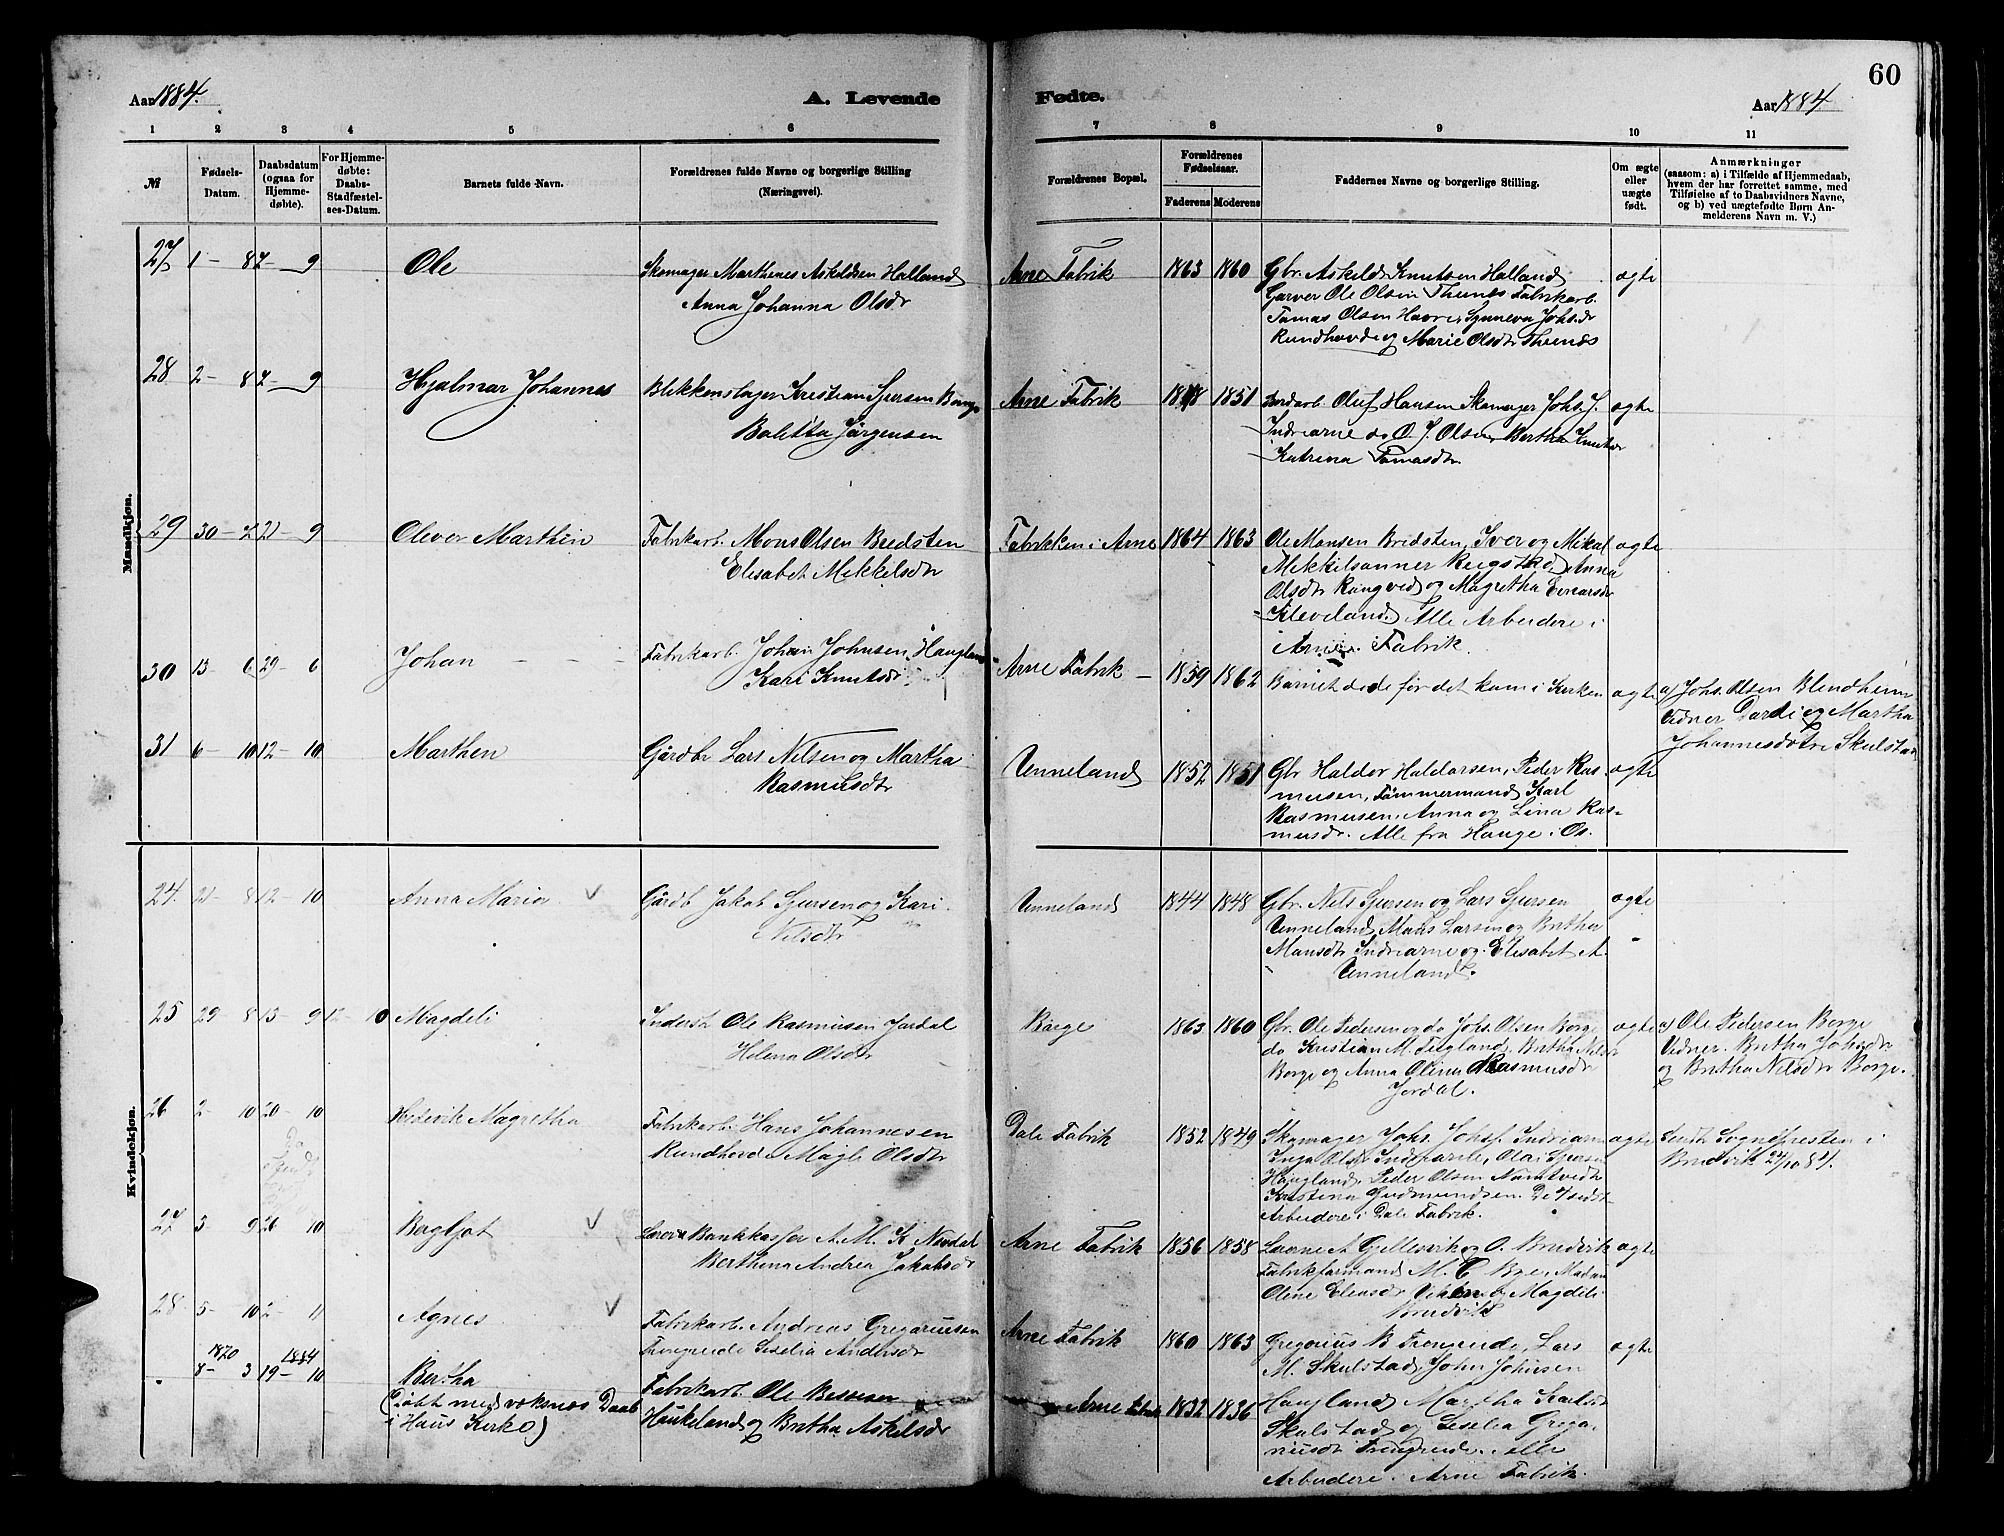 60
Aar 1884.
A. Levende
Fødte.
Aar 1884
1 2 3 4 5 6 7 8 9 10 11
№
Fødsels-
Datum.
Daabsdatum
(ogsaa for
Hjemme-
døbte).
For Hjemme-
døbte:
Daabs-
Stadfæstel-
ses-Datum.
Barnets fulde Navn.
Forældrenes fulde Navne og borgerlige Stilling
(Næringsvei).
Forældrenes Bopæl.
Forældrenes
Fødselsaar.
Faderens Moderens
Faddernes Navne og borgerlige Stilling.
Om ægte
eller
uægte
født.
Anmærkninger
(saasom: a) i Tilfælde af Hjemmedaab,
hvem der har forrettet samme, med
Tilføielse af to Daabsvidners Navne,
og b) ved uægtefødte Børn An-
melderens Navn m. V.)
Mandkjøn.
27 1 – 8 7 – 9
Ole
Skomager Marthenes Askeldsen Halland
Anna Johanna Olsdr
Arne Fabrik
1863 1860
Gbr. Askeld Knutsen Halland
Garver Ole Olsen Thunes Fabrikarb.
Tomas Olsen Havre, Synneva Johs.dr
Rundhovde og Marie Olsdr Thunes
ægte
28 2 – 8 7 – 9
Hjalmar Johannes
Blikkenslager Kristian Sjursen Borge
Boletta Jørgensen
Arne Fabrik
1851
Oluf Hansen Skomager Johs. J.
Indrearne do O. J. Olsen, Bertha
Katrina Tomasdr.
ægte
29 30 – 7 21 – 9
Olever Marthin
Fabrikarb. Mons Olsen Bredsten
Elisabet Mikkelsdr
Fabrikken i Arne
1864 1863
Ole Monsen Bridsten, Iver og Mikal
Mikkelsønner Anna
Olsdr Rangved og Magretha
Kleveland. Alle Arbeidere i
Arne Fabrik.
ægte
30 13 – 6 29 – 6
Johan
Fabrikarb. Johan Johnsen Haugland
Kari Knutsdr
Arne Fabrik –
1859 1862
Barnet døde før det kom i Kirken
ægte
a) Johs. Olsen Blindheim
Vidner Dardi og Martha
Johannesdøtre Skulstad
31 6 – 10 12 – 10
Marthen
Gårdbr Lars Nilsen og Martha
Rasmusdr
Unneland
1852 1851
Gbr. Haldor Haldorsen, Peder Ras-
musen, Tømmermand Karl
Rasmusen, Anna og Lina Ras-
musdr. Alle fra Hauge i Os.
ægte
Kvindekjøn.
24. 21 – 8 12 – 10
Anna Maria
Gårdb Jakob Sjursen og Kari
Nilsdr
Unneland
1844 1848
Gbr. Nils Sjursen og Lars Sjursen
Unneland, Mons Larsen og Britha
Monsdr Indrearne og Elisabet A.
Unneland.
ægte
25 29 – 8 13 – 9 12 – 10
Magdeli
Inderst Ole Rasmusen Jordal
Helena Olsdr
Borge
1863 1860
Gbr. Ole Pedersen og do Johs. Olsen Borge
do Kristian M. Tugland, Britha Nilsdr
Borge og Anna Olena Rasmusdr
Jordal.
ægte
a) Ole Pedersen Borge
Vidner. Britha Johsdr.
og Britha Nilsdr Borge.
26 2 – 10 20 – 10
Hedevik Magretha
Fabrikarb. Hans Johannesen
Rundhovde Magli Olsdr
Dale Fabrik
1852 1849
Skomager Johs. Johs. Indrearne
Inga Olsdr Indrearne, Ola Sjursen
Haugland, Peder Olsen Namtvedt
Kristina Gudmundsen. De 4 sidste
Arbeidere i Dale Fabrik.
ægte
Sendt Sognepresten i
Bruvik 24/10 84.
27 3 – 9 26 – 10
Bergljot
Lærer & Bankkasser A. M. K. Nevdal
Berthina Andrea Jakobsdr
Arne Fabrik
1856 1858
Lærerne A Gjellesvik og O. Bruvik
Fabrikformand M. C. Bøe, Madam
Oline og Magdeli
Bruvik
ægte
28 5 – 10 2 – 11
Agnes
Fabrikarb. Andreas Gregoriusen
Trengereide Seselia Andersdr
Arne Fabrik
1860 1863
Gregorius B Trengereide, Lars
M. Skulstad, John Johnsen
Haugland Martha Karlsdr
Skulstad og Seselia Grego-
riusdr Trengereide. Alle
Arbeidere i Arne Fabrik.
ægte
1870 1884
8 – 3 19 – 10
Bertha
(Døbt med voksnes Daab
i Haus Kirke)
Fabrikarb Ole Bessesen
Haukeland og Britha Askelsdr
Arne Fabrik
1832 1836